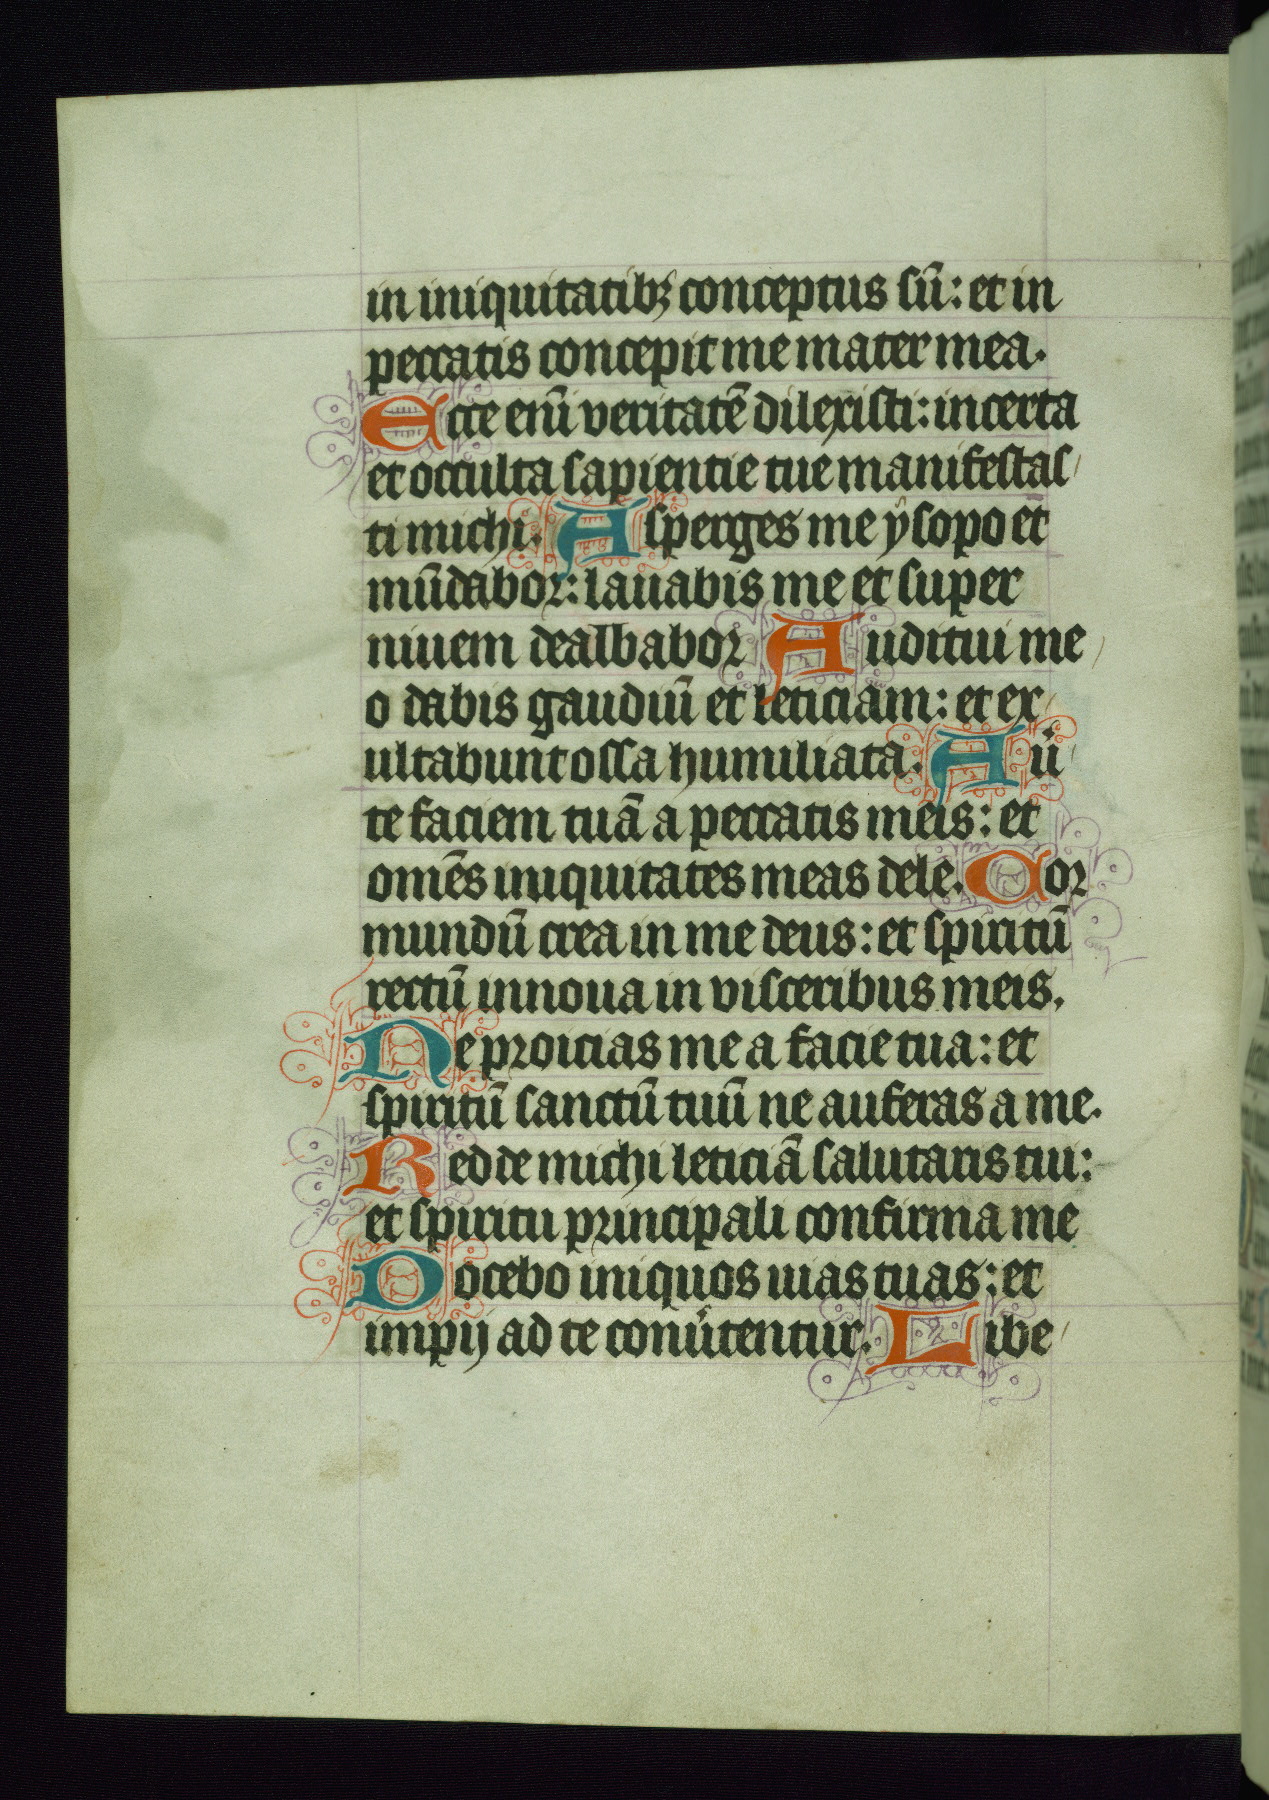 in iniquitatibꝫ conceptus sū: et in
peccatis concepit me mater mea.
Ecce enī veritatē dilexisti: incerta
et occulta sapientie tue manifestas/
ti michi. Asperges me ysopo et
mūdabor: lauabis me et super
niuem dealbabor Auditui me/
o dabis gaudiū et leticiam: et ex/
ultabunt ossa humiliata. Aū/
te faciem tuā a peccatis meis: et
omēs iniquitates meas dele. Cor
mundū crea in me deus: et spiritū
rectū innoua in visceribus meis.
Ne proicias me a facie tua: et
spiritū sanctū tuū ne auferas a me.
Redde michi leticiā salutaris tui:
et spiritu principali confirma me
Docebo iniquos uias tuas: et
impij ad te conūtentur. Libe/